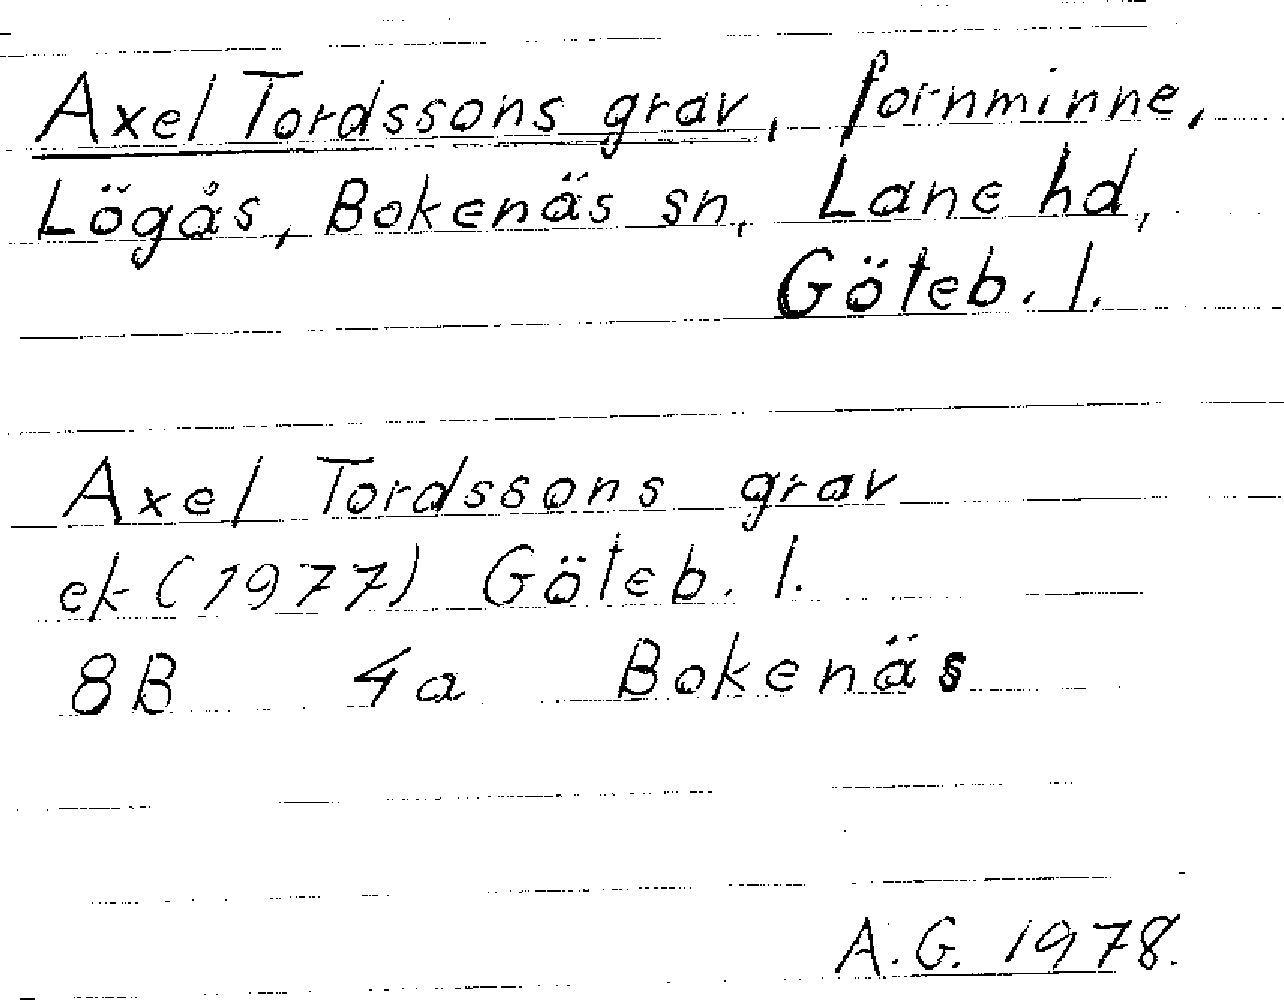 Axel Tordssons grav, fornminne,
Lögås, Bokenäs sn, Lane hd,
Göteb. l.
Axel Tordssons grav
ek (1977) Göteb. l.
8B 4a Bokenäs
A.G. 1978.